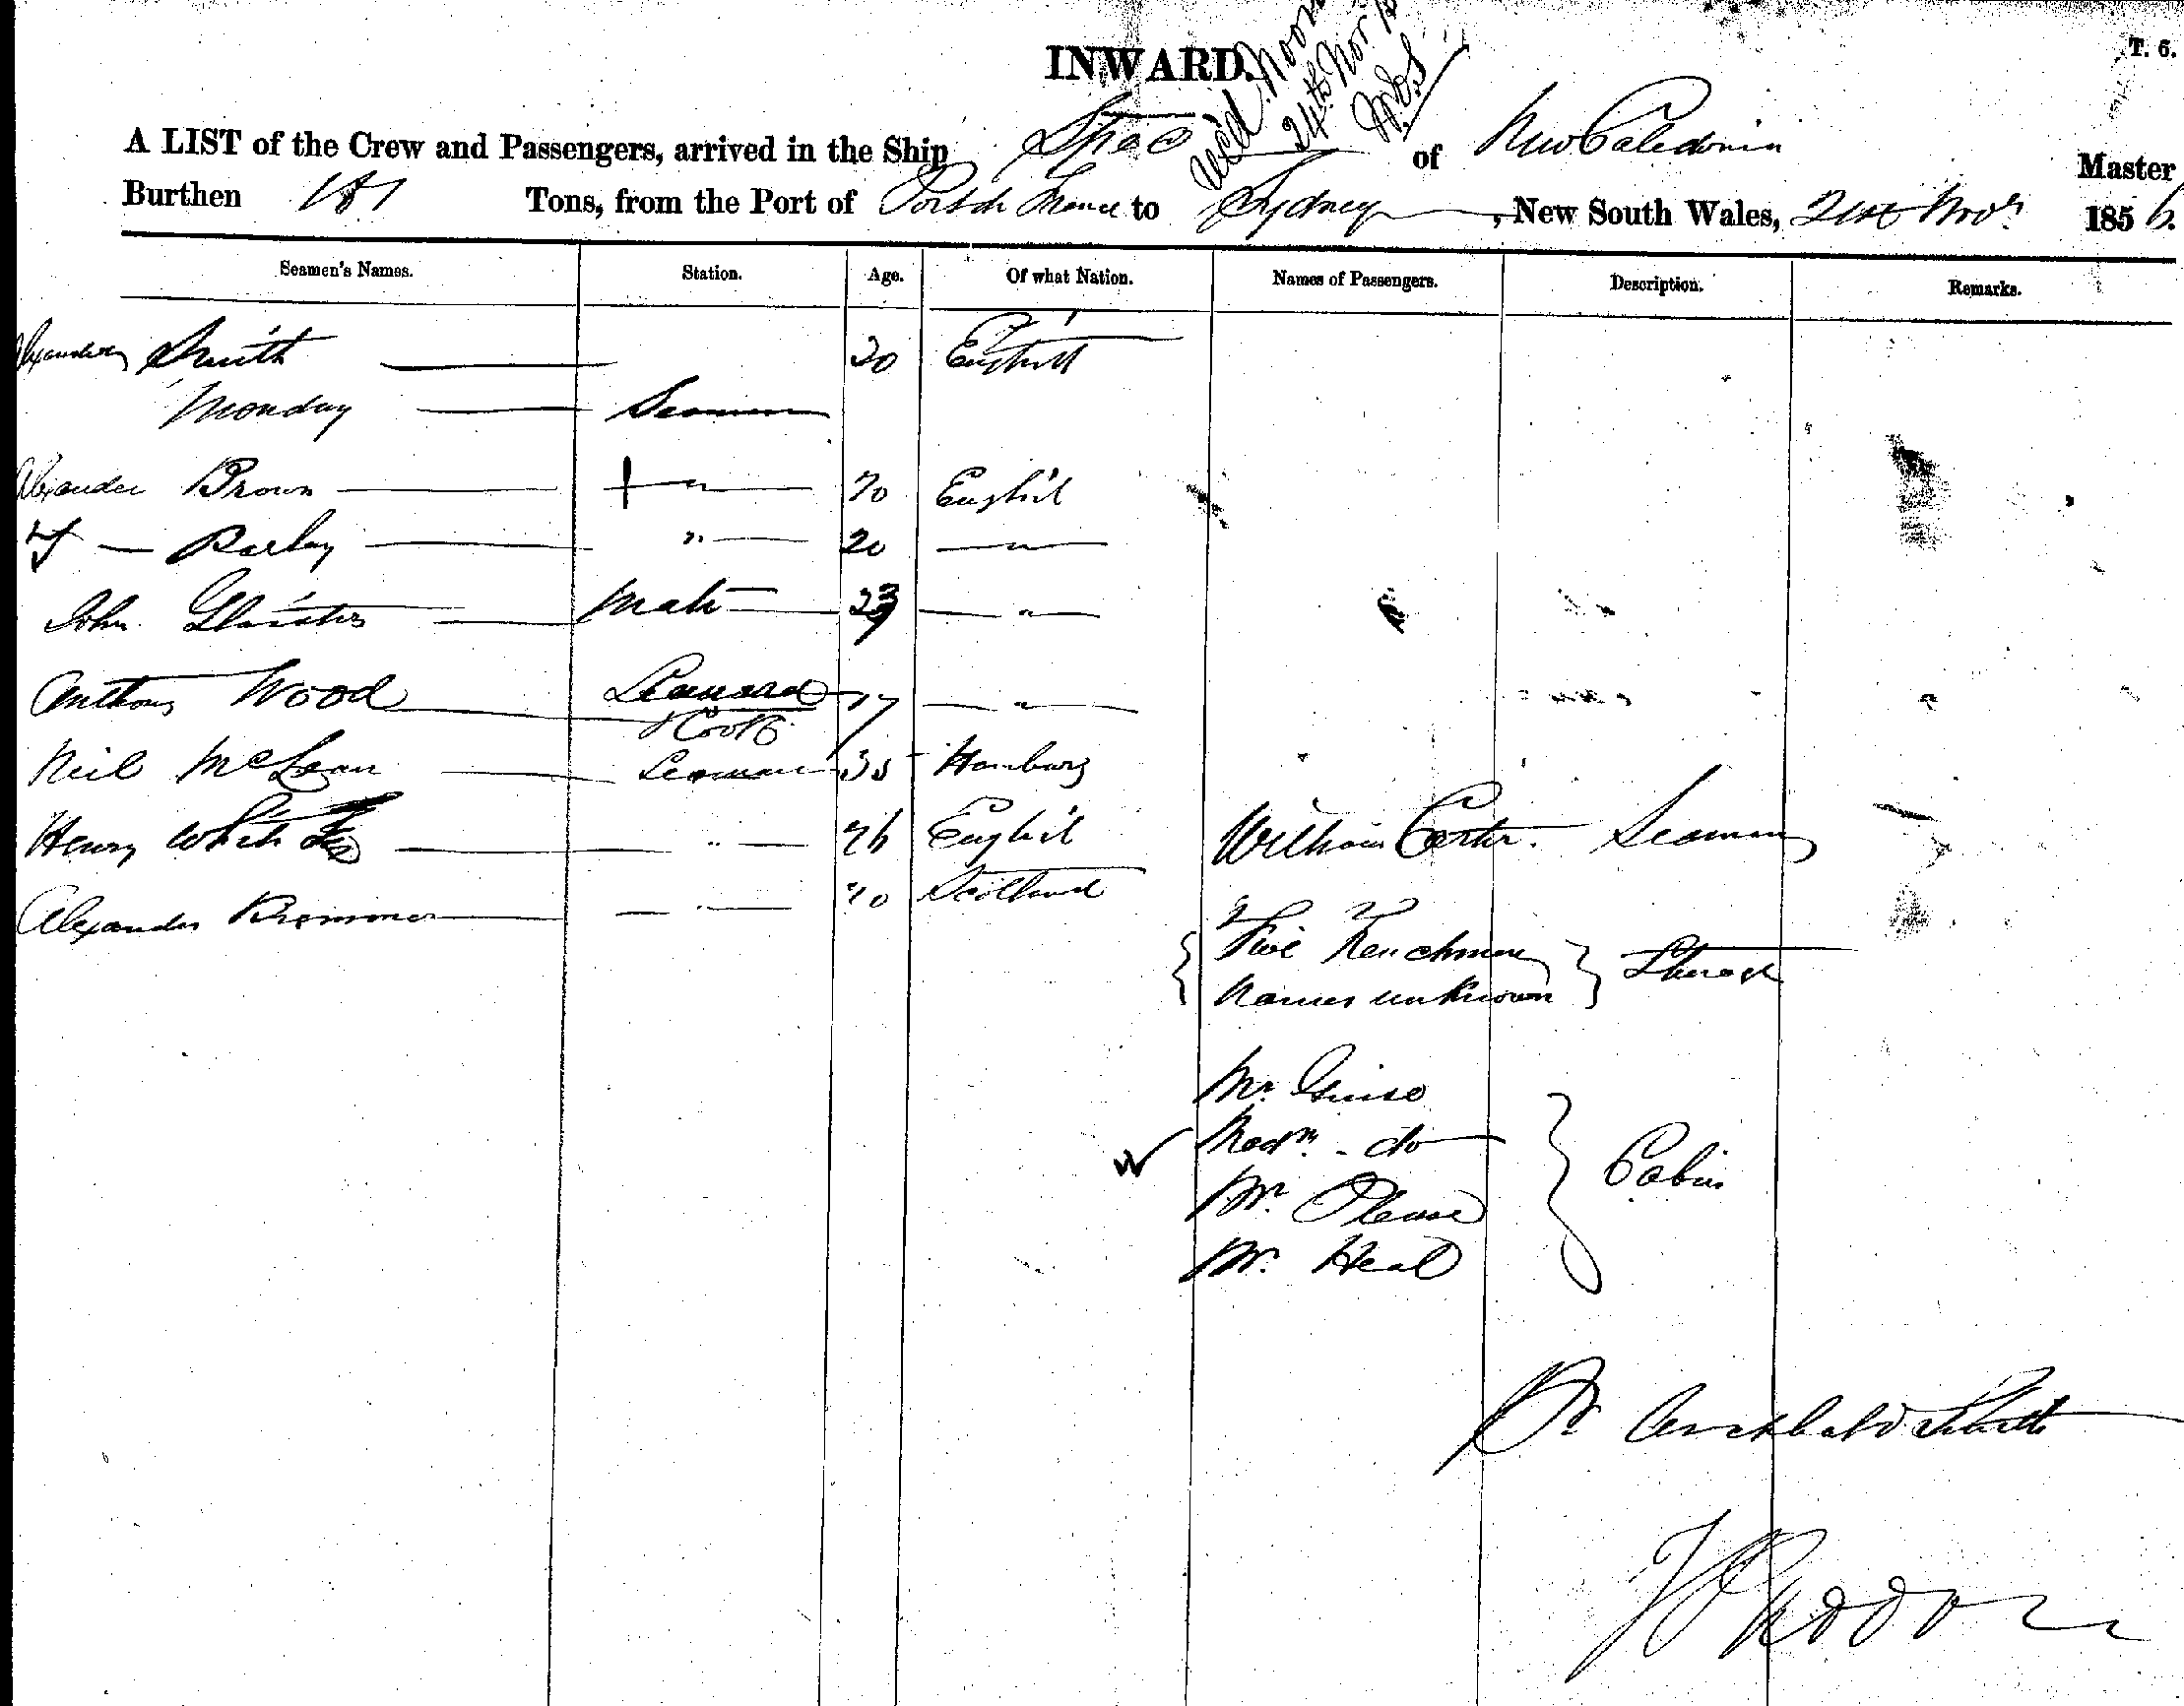 INWARD.
T. 6.
24th Nov
A LIST of the Crew and Passengers, arrived in the Ship Spec of New Caledonia Master
Burthen 181 Tons, from the Port of Port de France to Sydney, New South Wales, 21st Novr 1856.
Seamen's Names. Station. Age. Of what Nation. Names of Passengers. Description. Remarks.
Alexander Smith 20 English
Monday Seaman
Alexander Brown " 20 English
Barley " 20 "
John Mate 23 "
Anthony Wood Seaman & Cook 17 "
Neil McLean Seaman 35 Hamburg
Henry White " 26 English William Carter. Seaman
Alexander Bremner " 20 Scotland
Five Frenchmen
Names unknown Steerage
Mr. Guise
Madm. - do
Mr. Please Cabin
Mr. Heal
Archbald Smith